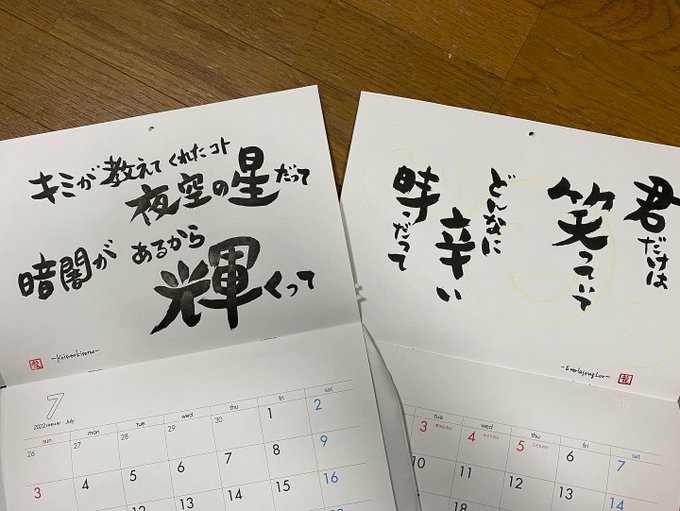 キミが教えてくれたコト
夜空の星だって
暗闇が あるから
輝くって
7
2022 July
sun mon tue wed thu fri sat
26 27 28 29 30 1 2
3 4 5 6 7 8 9
10 11 12 13 14 15 16
君だけは
笑っていて
どんなに
辛い
時だって
tue wed thu fri sat
3 4 5 6 7
10 11 12 13 14